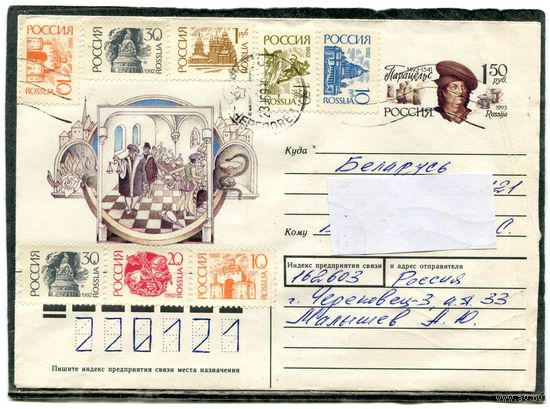 РОССИЯ
10
ROSSIJA
РОССИЯ
30
1992 ROSSIJA
РОССИЯ
1 руб
ROSSIJA
РОССИЯ
ROSSIJA
РОССИЯ
1992
10
ROSSIJA
ЧЕРЕПОВЕ
Парацельс
1493-1541
РОССИЯ
1.50
руб.
1993
Rossija
Куда
Беларусь
121
Кому
С.
Индекс предприятия связи и адрес отправителя
162603 Россия
г. Череповец-3, а.я. 33
Малышев А. Ю.
РОССИЯ
30
1992 ROSSIJA
РОССИЯ
20
1992 ROSSIJA
РОССИЯ
1992 10
ROSSIJA
220121
Пишите индекс предприятия связи места назначения
www.ay.by